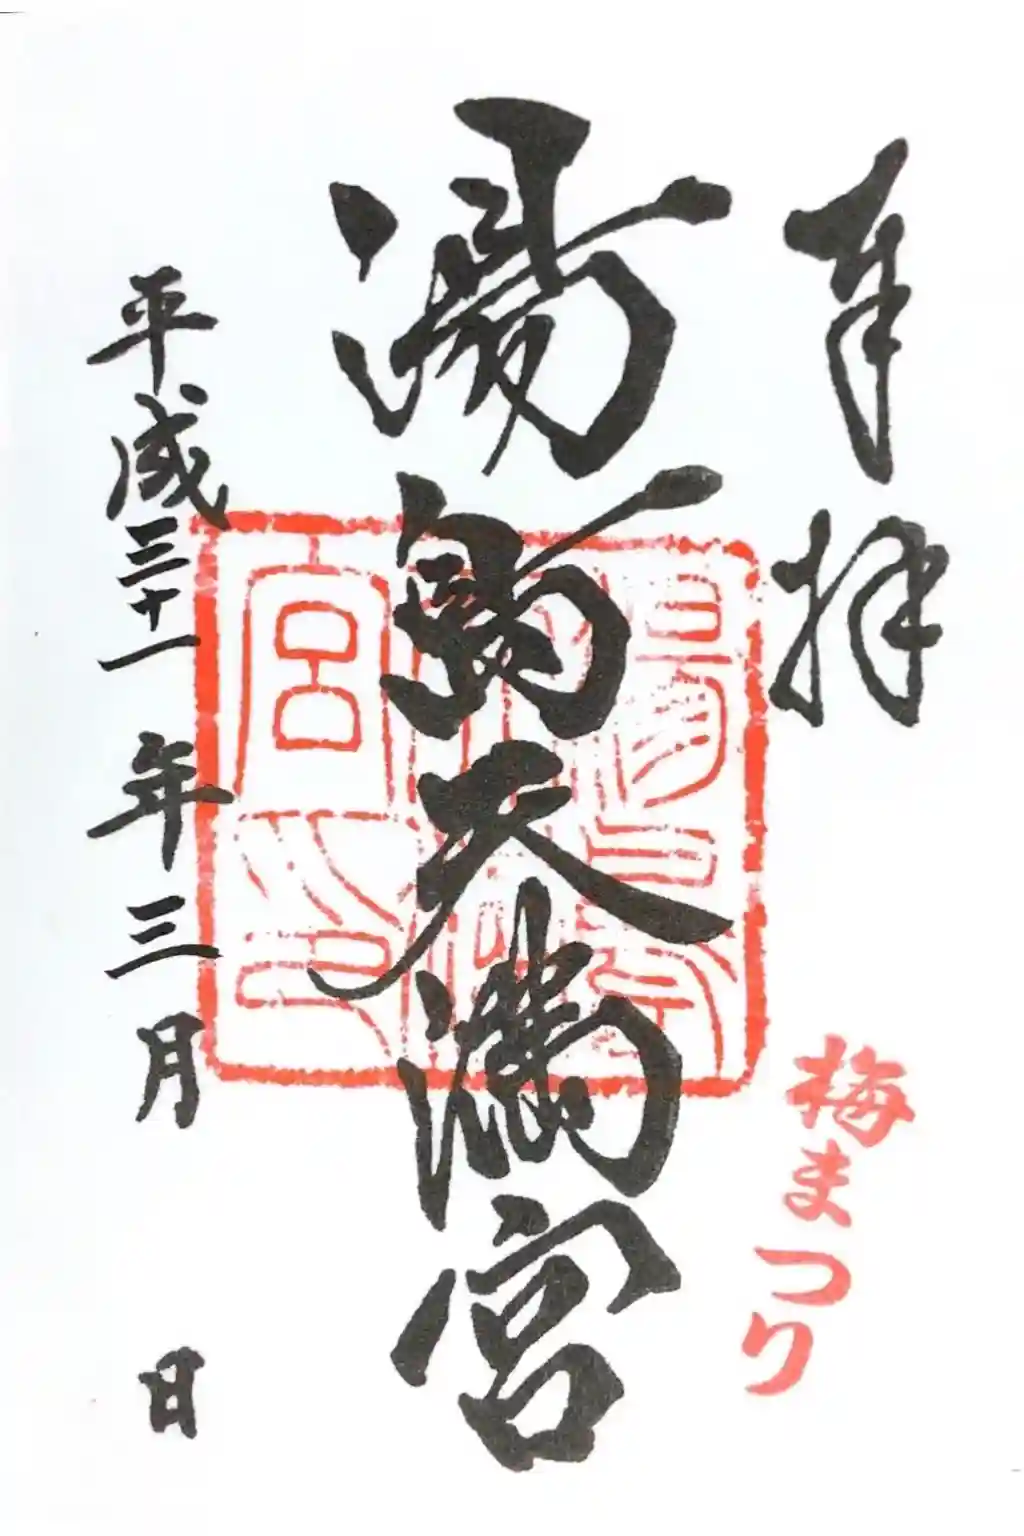 奉拝
湯島天満宮
平成三十一年三月 日
梅まつり